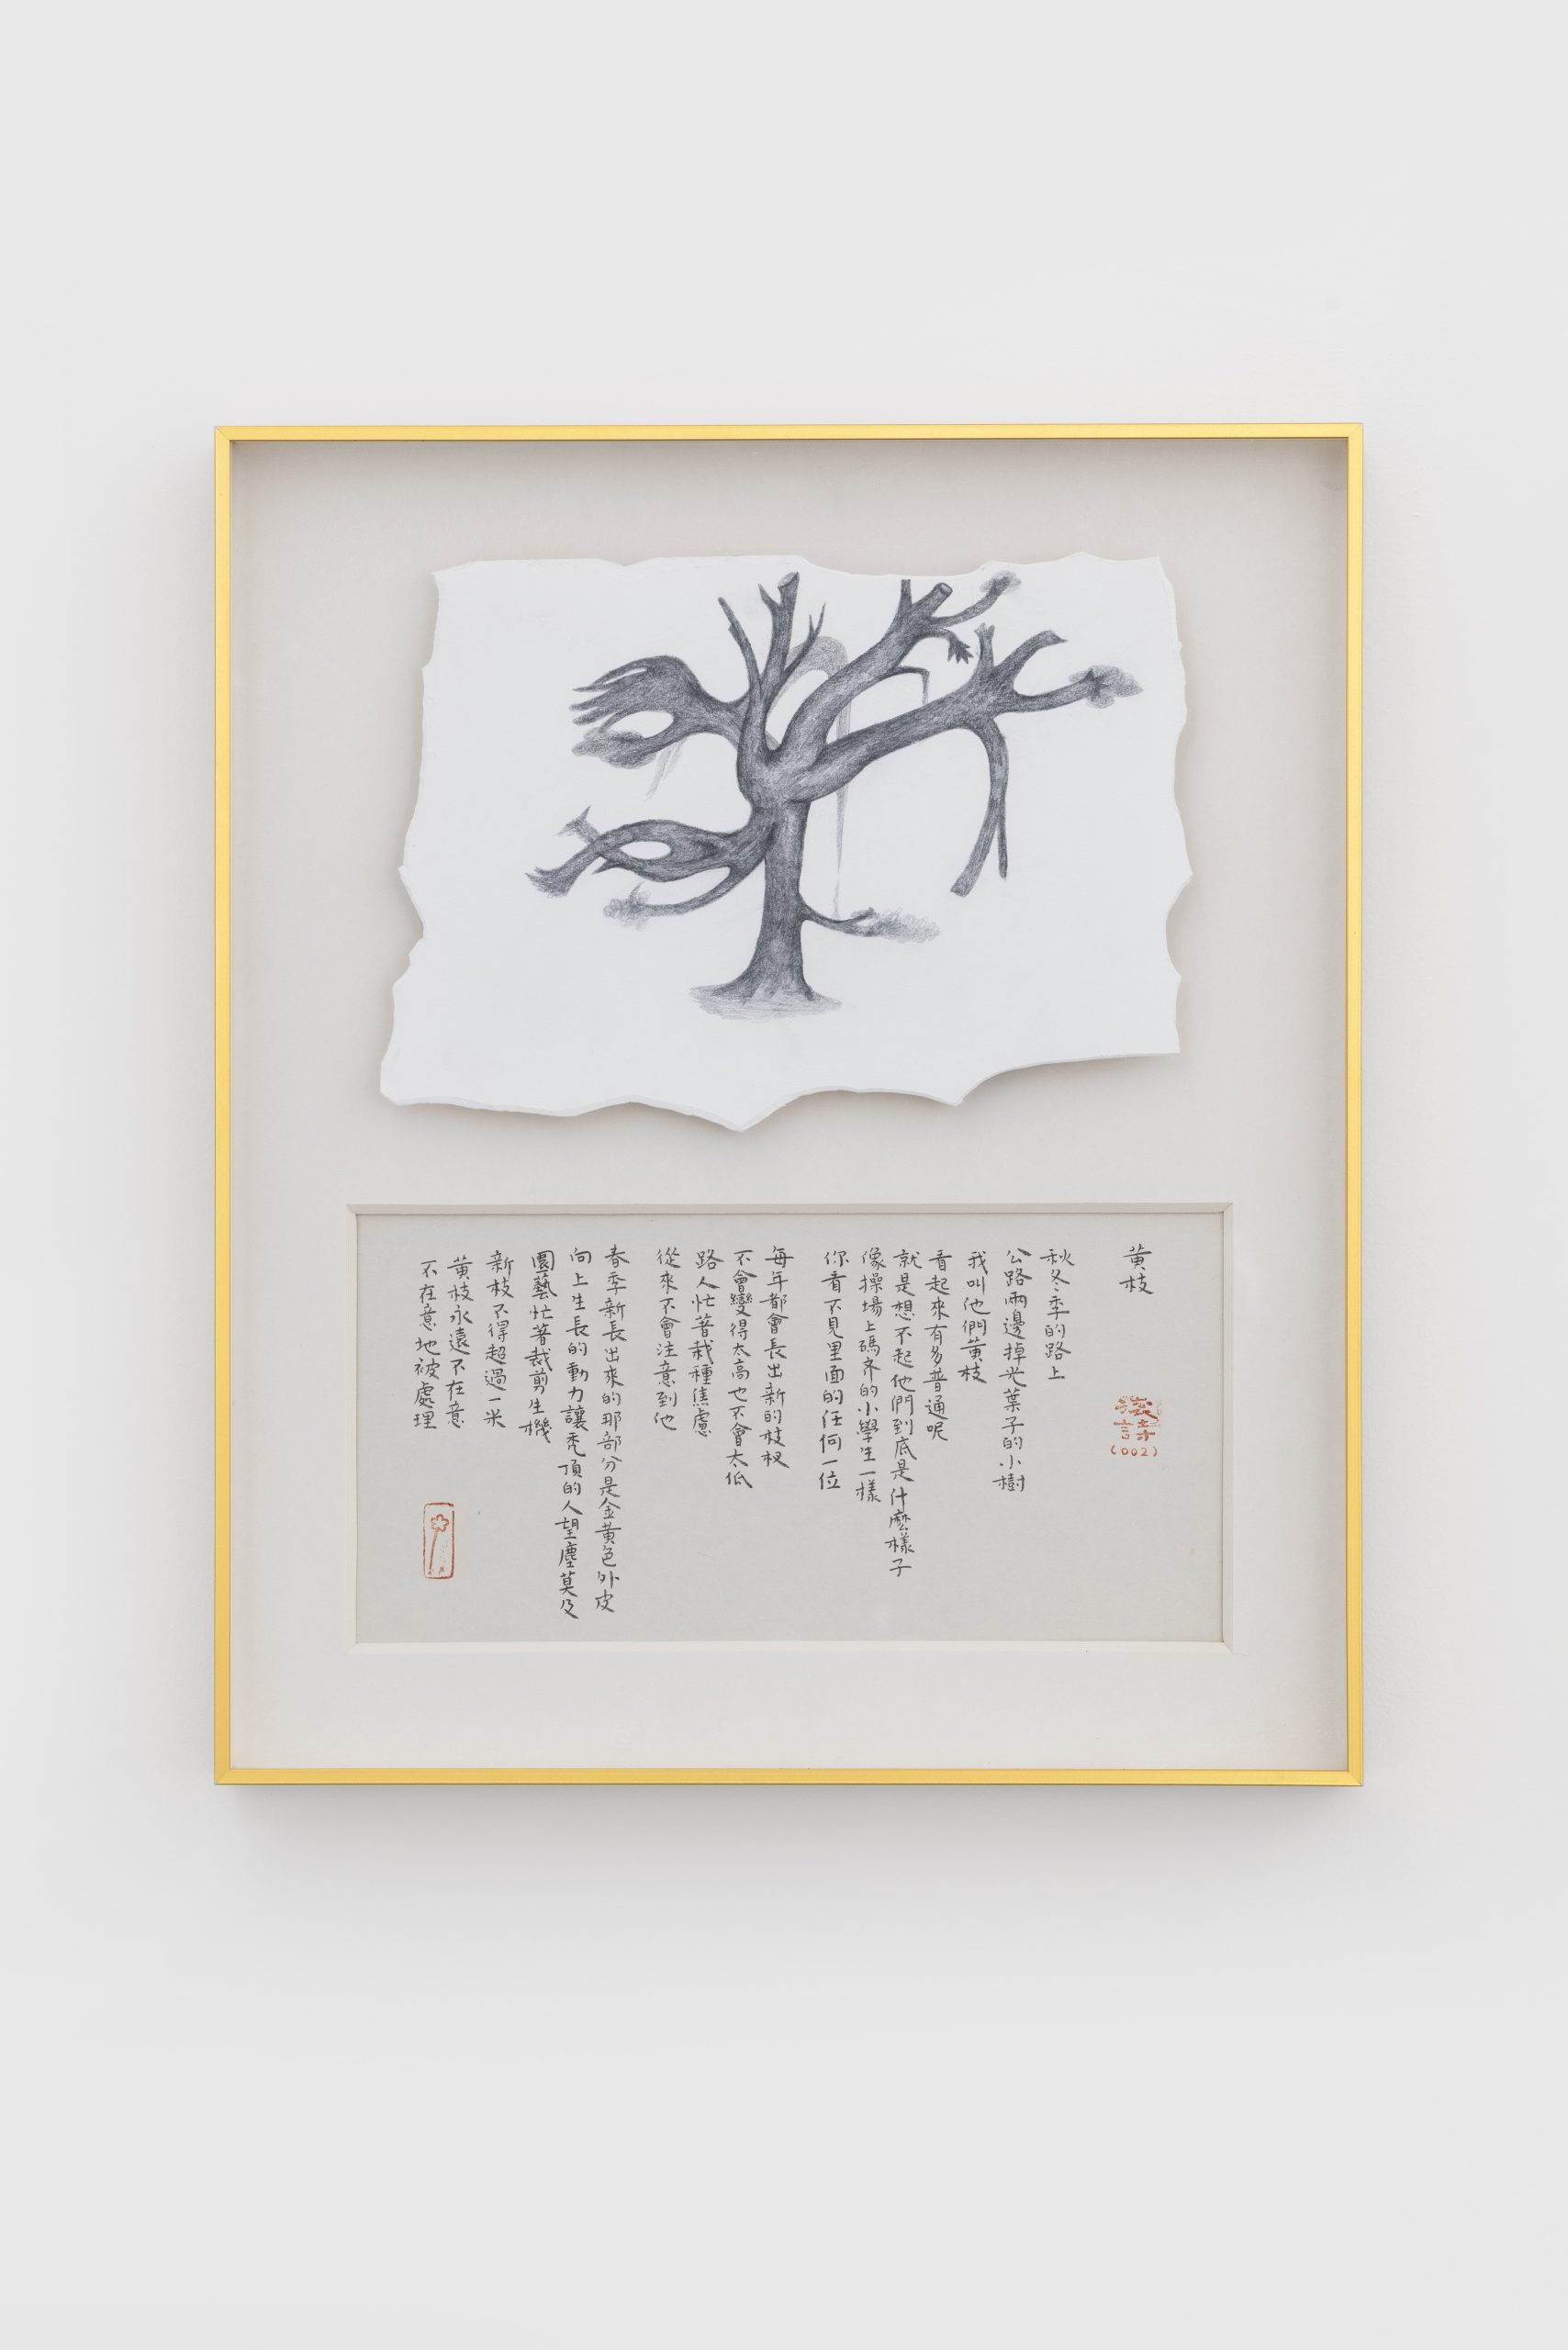 黄枝
(002)
秋冬季的路上
公路兩邊掉光葉子的小樹
我叫他們黄枝
看起來有多普通呢
就是想不起他們到底是什麼樣子
像操場上碼齐的小學生一樣
你看不見里面的任何一位
每年都會長出新的枝杈
不會變得太高也不會太低
路人忙著栽種焦慮
從來不會注意到他
春季新長出來的那部分是金黄色外皮
向上生長的動力讓禿頂的人望塵莫及
園藝忙著裁剪生機
新枝不得超過一米
黄枝永遠不在意
不在意地被處理